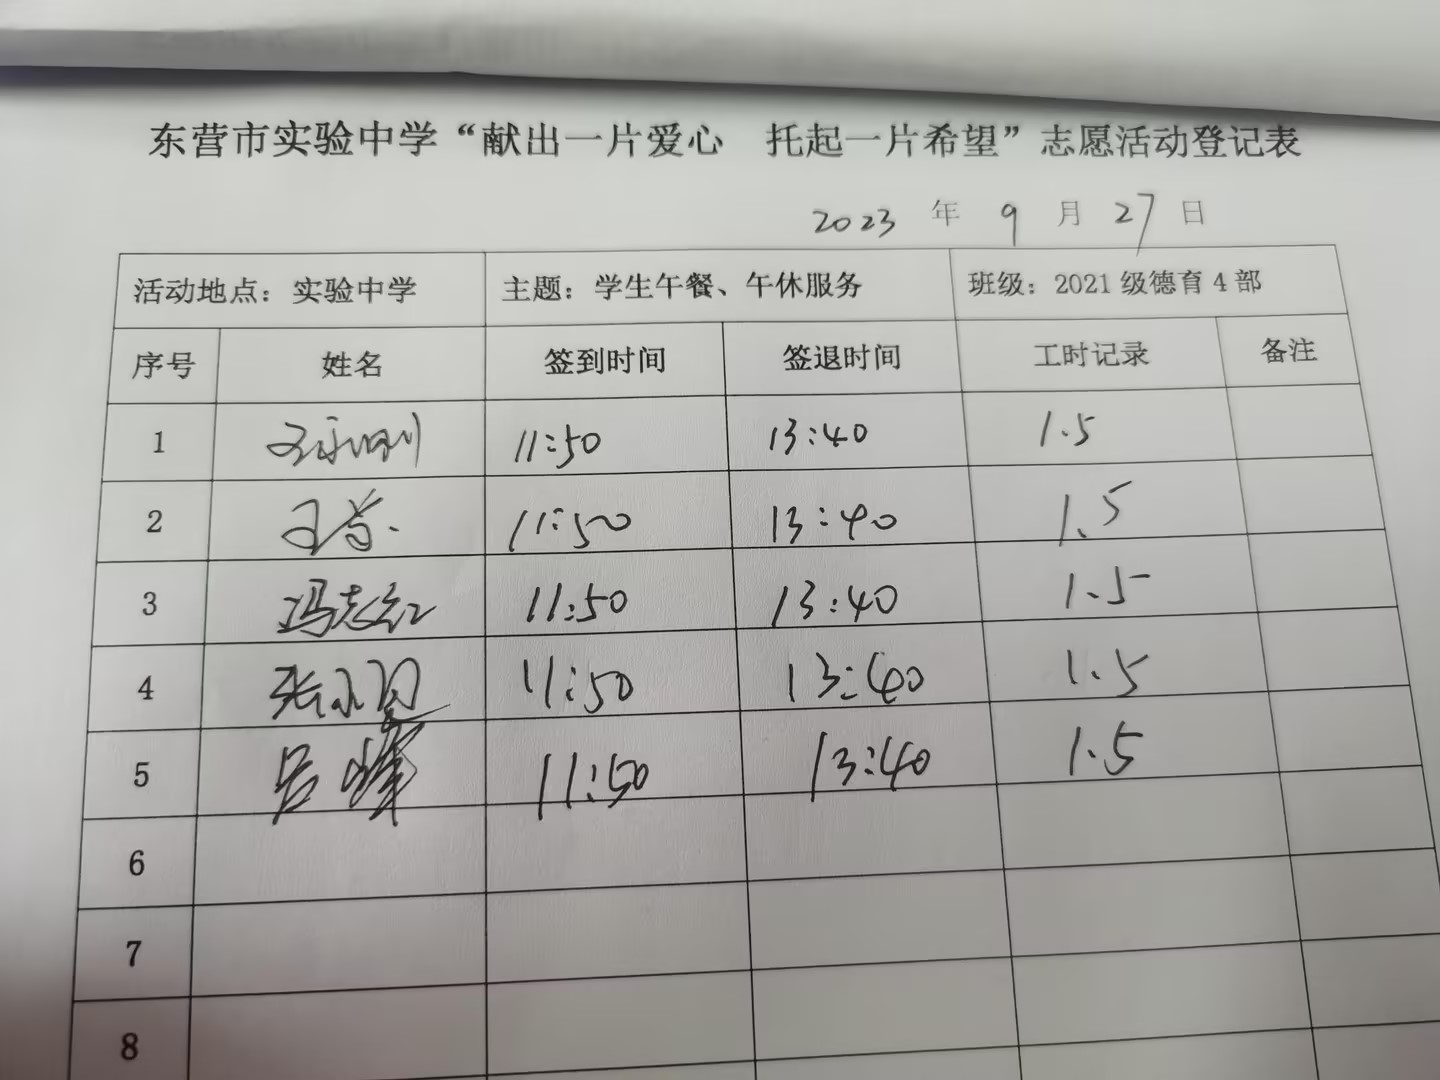 东营市实验中学“献出一片爱心 托起一片希望”志愿活动登记表
2023 年 9 月 27 日
活动地点：实验中学 主题：学生午餐、午休服务 班级：2021 级德育 4 部
序号 姓名 签到时间 签退时间 工时记录 备注
1 11:50 13:40 1.5
2 11:50 13:40 1.5
3 冯志红 11:50 13:40 1.5
4 张小 11:50 13:40 1.5
5 吕峰 11:50 13:40 1.5
6
7
8